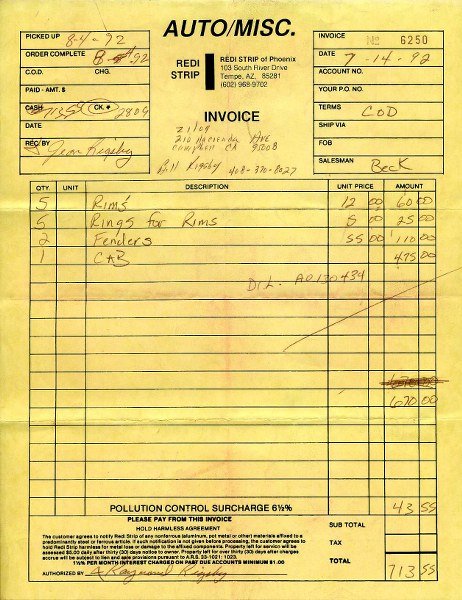 AUTO/MISC.
PICKED UP 8-4-92
ORDER COMPLETE 8- -92
C.O.D. CHG.
PAID - AMT. $
CASH 713.55 CK. # 2809
DATE
REC. BY Jean Rigsby
REDI STRIP
REDI STRIP of Phoenix
103 South River Drive
Tempe, AZ. 85281
(602) 968-9702
INVOICE
INVOICE No 6250
DATE 7-14-92
ACCOUNT NO.
YOUR P.O. NO.
TERMS COD
SHIP VIA
FOB
SALESMAN Beck
210 Hacienda Ave
Campbell CA 95008
Bill Rigsby 408-370-8027
QTY. UNIT DESCRIPTION UNIT PRICE AMOUNT
5 Rims 12 00 60 00
5 Rings for Rims 5 00 25 00
2 Fenders 55 00 110 00
1 CAB 475 00
D.L. A0130434
670 00
POLLUTION CONTROL SURCHARGE 6½% 43 55
PLEASE PAY FROM THIS INVOICE
HOLD HARMLESS AGREEMENT
The customer agrees to notify Redi Strip of any nonferrous aluminum, pot metal or other materials affixed to a
predominantly steel or ferrous article. If such notification is not given before processing, the customer agrees to
hold Redi Strip harmless for metal loss or damage to the affixed components. Property left for service will be
assessed $5.00 daily after thirty (30) days notice to owner. Property left for over thirty (30) days after charges
accrue will be subject to lien and sale provisions pursuant to A.R.S. 33-1021; 1023.
1½% PER MONTH INTEREST CHARGED ON PAST DUE ACCOUNTS MINIMUM $1.00
AUTHORIZED BY Raymond Rigsby
SUB TOTAL
TAX
TOTAL 713 55